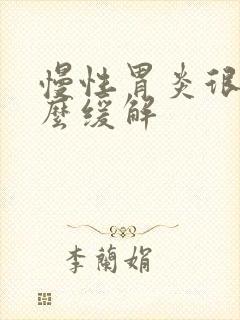 慢性胃炎很
麼缓解
李蘭娟